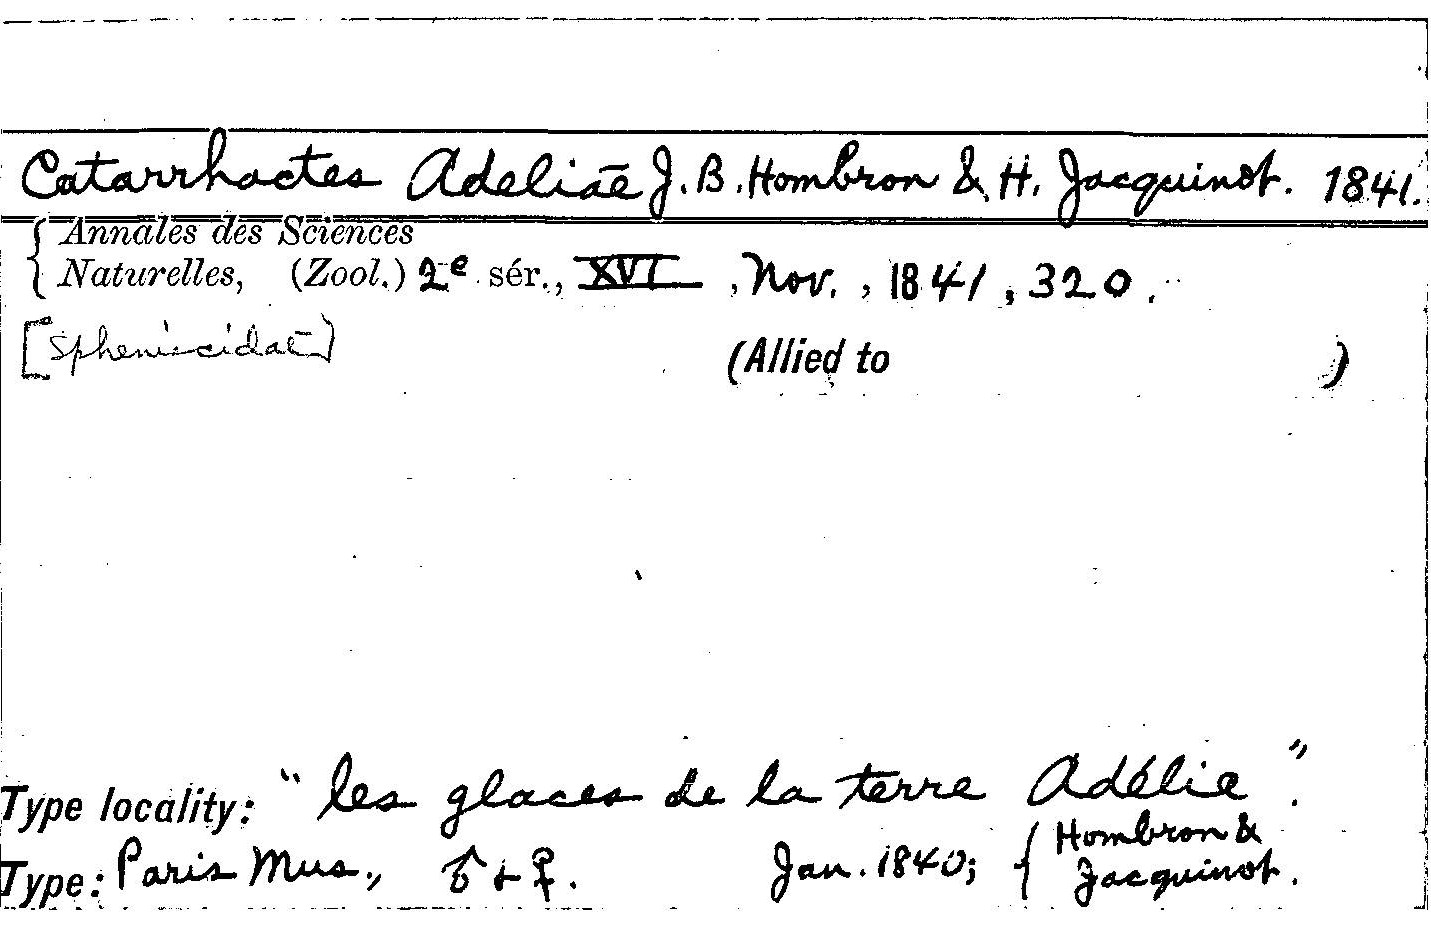 Catarrhactes Adeliae J. B. Hombron & H. Jacquinot. 1841.
Annales des Sciences
Naturelles, (Zool.) 2e sér., XVI, Nov., 1841, 320.
[Spheniscidae]
(Allied to )
Type locality: "les glaces de la terre Adélie".
Type: Paris Mus., ♂ + ♀. Jan. 1840; { Hombron &
Jacquinot.